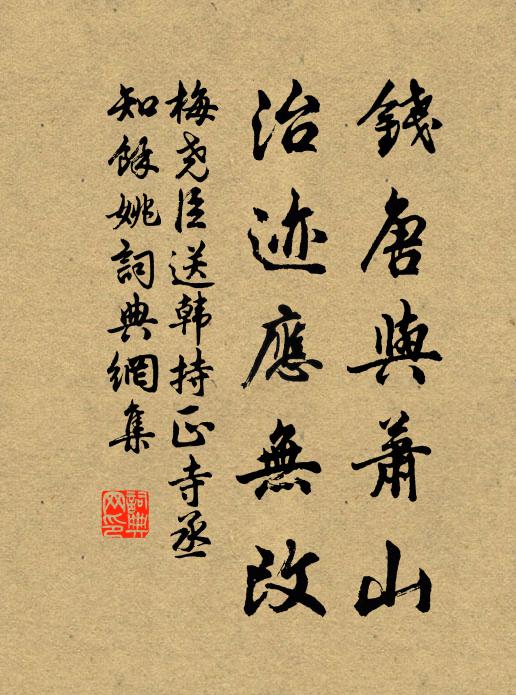 錢唐與蕭山
治迹應無改
梅尧臣送韩持正寺丞
知餘姚詞典網集
詞典網印